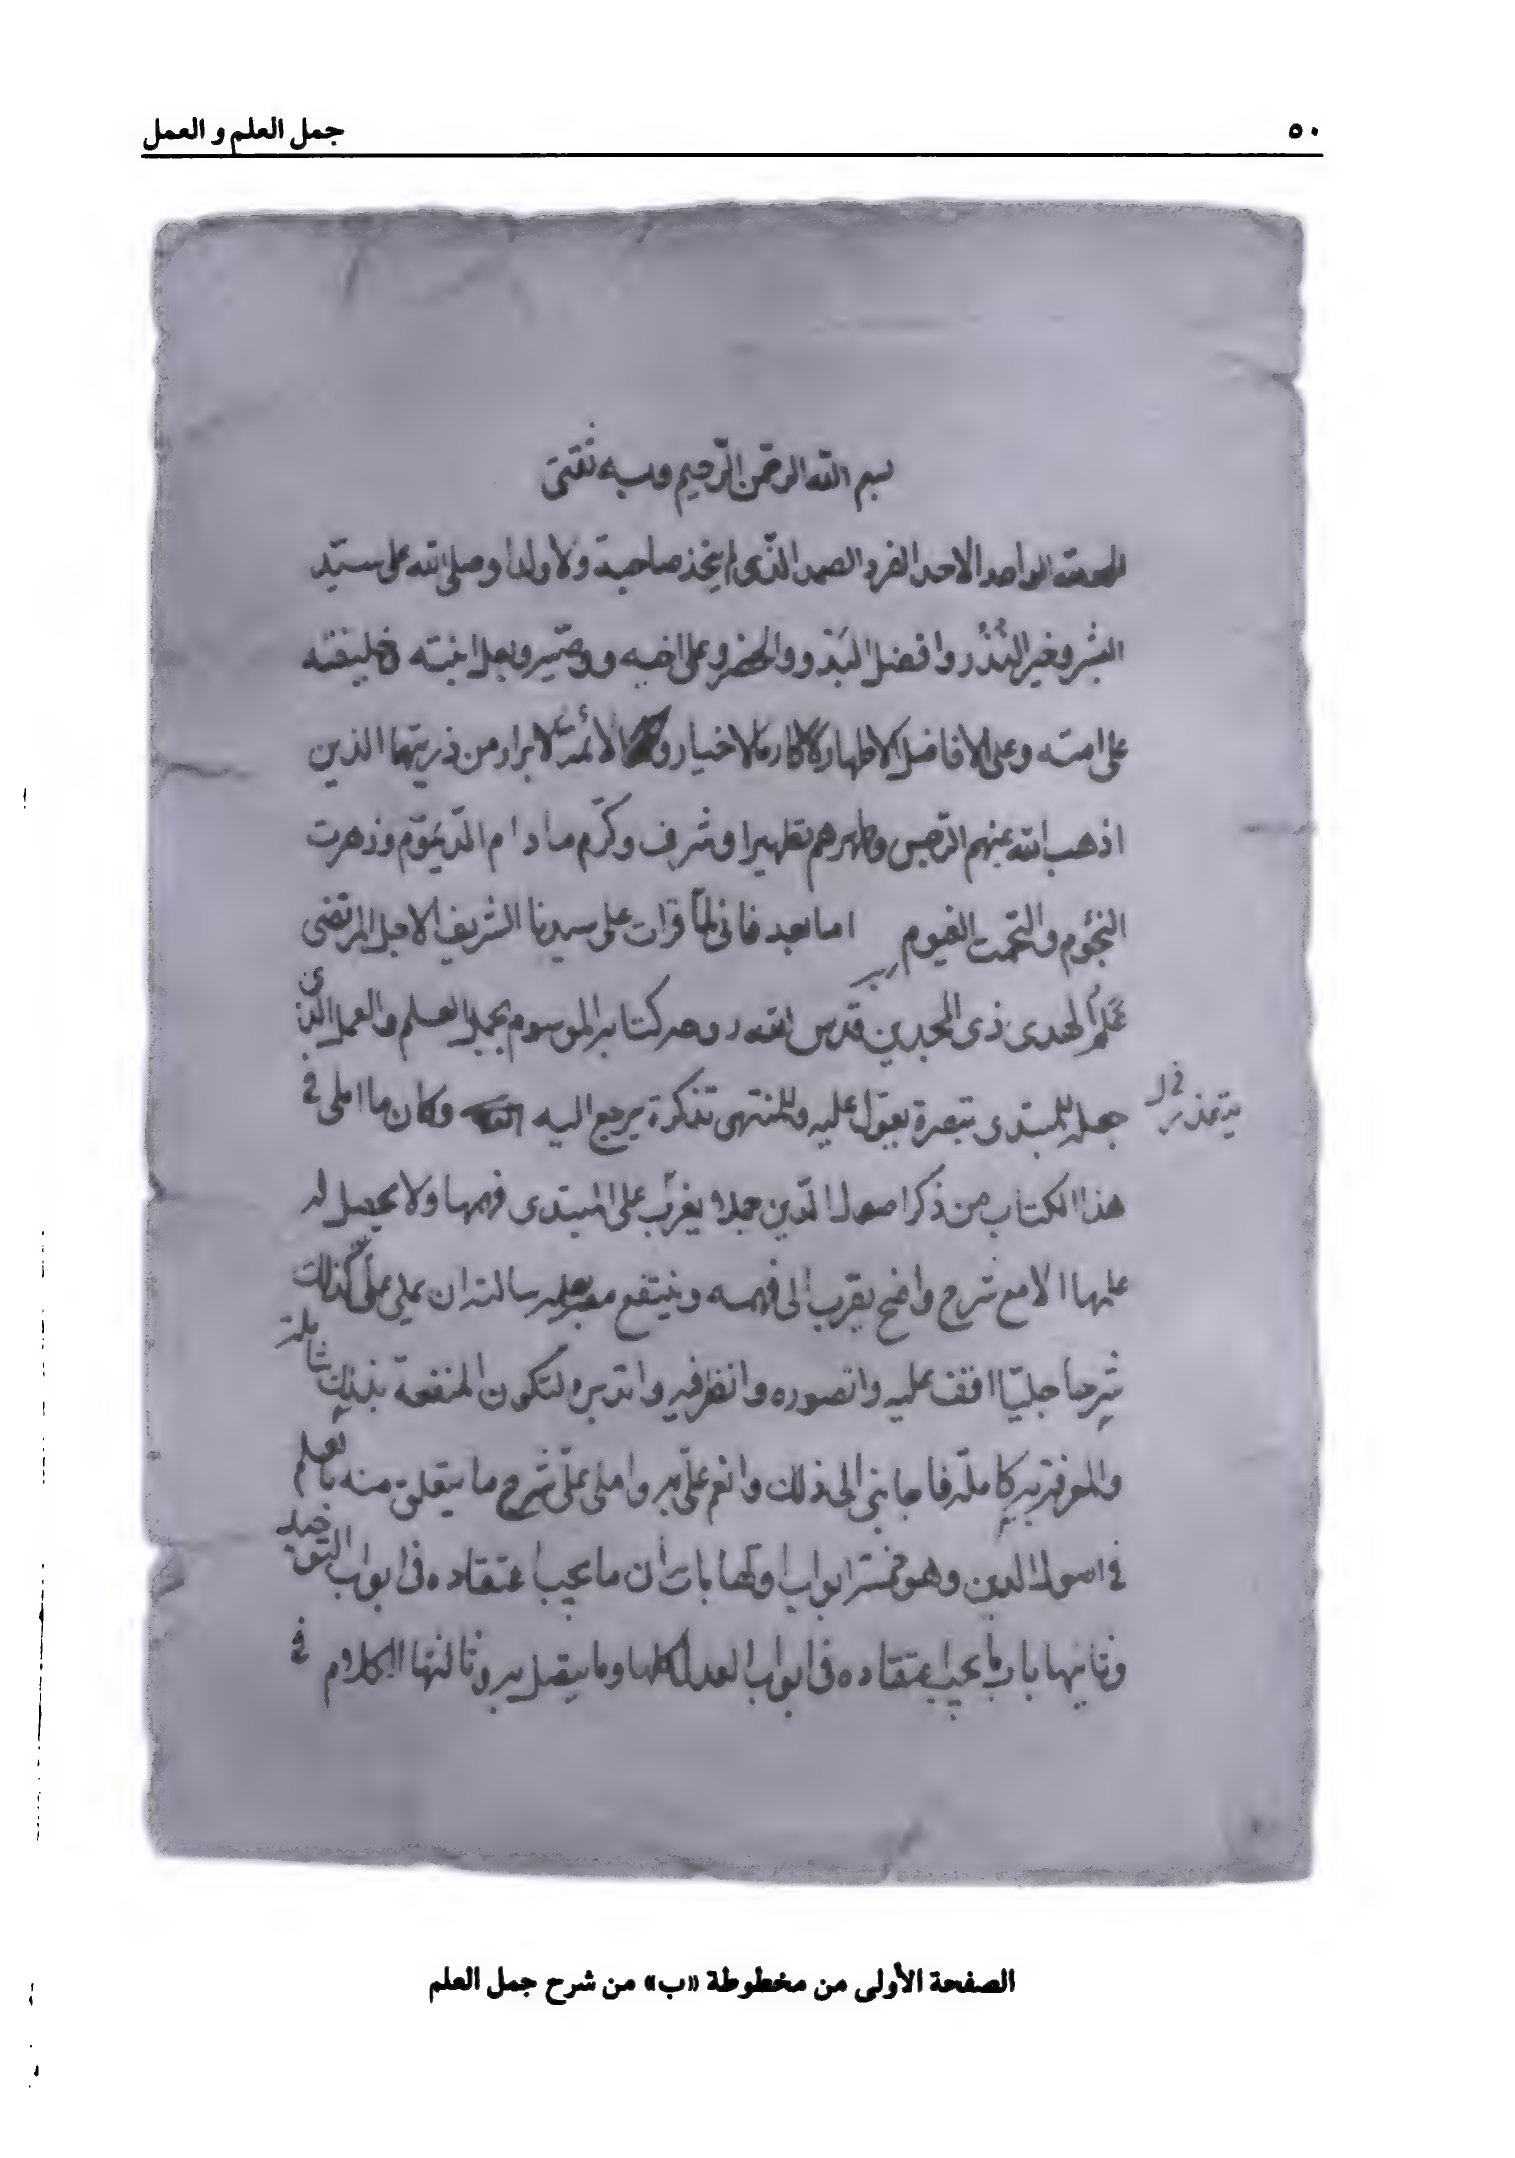 ٥٠
جمل العلم و العمل
بسم الله الرحمن الرحيم وبه ثقتى
الحمد لله الواحد الاحد الفرد الصمد الذى لم يتخذ صاحبة ولا ولدا وصلى الله على سيد
البشر وخير النذر وافضل البدو والحضر وعلى اخيه ووصيه وبعل ابنته خليفته
على امته وعلى الافاضل الاطهار الاكارم الاخيار و الائمة الابرار من ذريتهما الذين
اذهب الله عنهم الرجس وطهرهم تطهيرا وشرف وكرم ما دام الديموم وزهرت
النجوم والتحمت الغيوم اما بعد فانى لما قرات على سيدنا الشريف الاجل المرتضى
علم الهدى ذى المجدين قدس الله روحه كتابه الموسوم بجمل العلم والعمل الذى
جعله للمبتدى تبصرة يعول عليه وللمنتهى تذكرة يرجع اليه وكان ما املى فى
هذا الكتاب من ذكر اصول الدين جملا يغرب على المبتدى فهمها ولا يحصل له
علمها الا مع شرح واضح يقرب الى فهمه وينتفع سالته ان يملى على لذلك
شرحا جليا اقف عليه واتصوره وانظر فيه واتدبره لتكون المنفعة بذلك شاملة
والمعرفة به كاملة فاجابنى الى ذلك وانعم على به واملى على شرح ما يتعلق منه بالعلم
فى اصول الدين وهو خمسة ابواب اولها باب ما يجب اعتقاده فى ابواب التوحيد
وثانيها باب ما يجب اعتقاده فى ابواب العدل كلها وما يتصل به وثالثها الكلام فى
الصفحة الأولى من مخطوطة «ب» من شرح جمل العلم